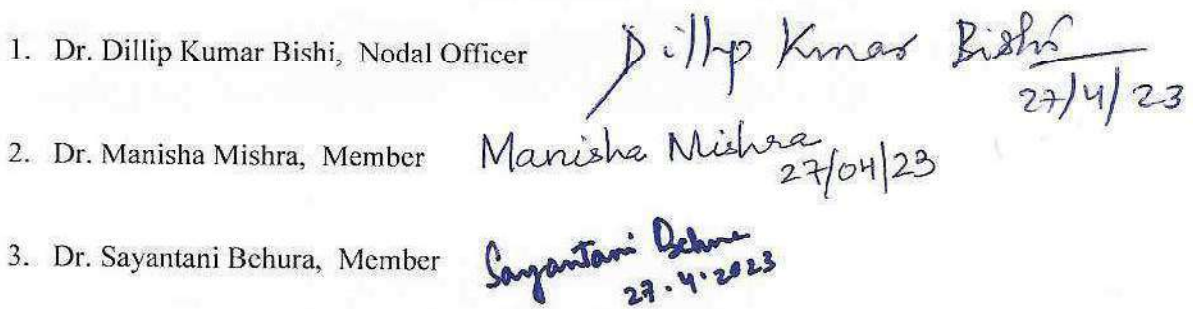 1. Dr. Dillip Kumar Bishi, Nodal Officer Dillip Kumar Bishi
27/4/23
2. Dr. Manisha Mishra, Member Manisha Mishra
27/04/23
3. Dr. Sayantani Behura, Member Sayantani Behura
27.4.2023